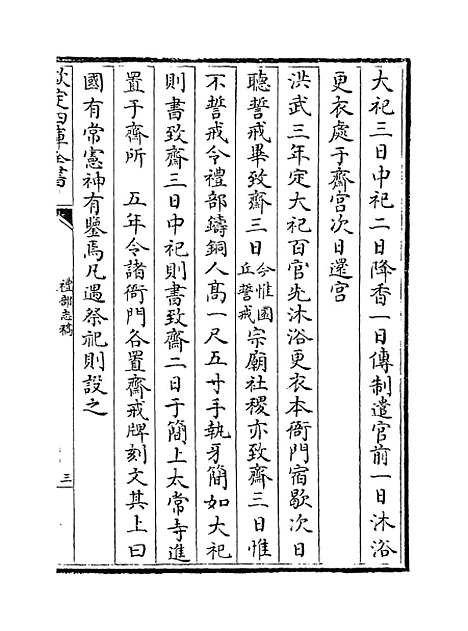 大祀三日中祀二日降香一日傳制遣官前一日沐浴
更衣處于齋宮次日還宮
洪武三年定大祀百官先沐浴更衣本衙門宿歇次日
聽誓戒畢致齋三日
今惟圜
丘誓戒
宗廟社稷亦致齋三日惟
不誓戒令禮部鑄銅人高一尺五寸手執牙簡如大祀
則書致齋三日中祀則書致齋二日于簡上太常寺進
置于齋所　五年令諸衙門各置齋戒牌刻文其上曰
國有常憲神有鑒焉凡遇祭祀則設之
欽定四庫全書
禮部志稿
三